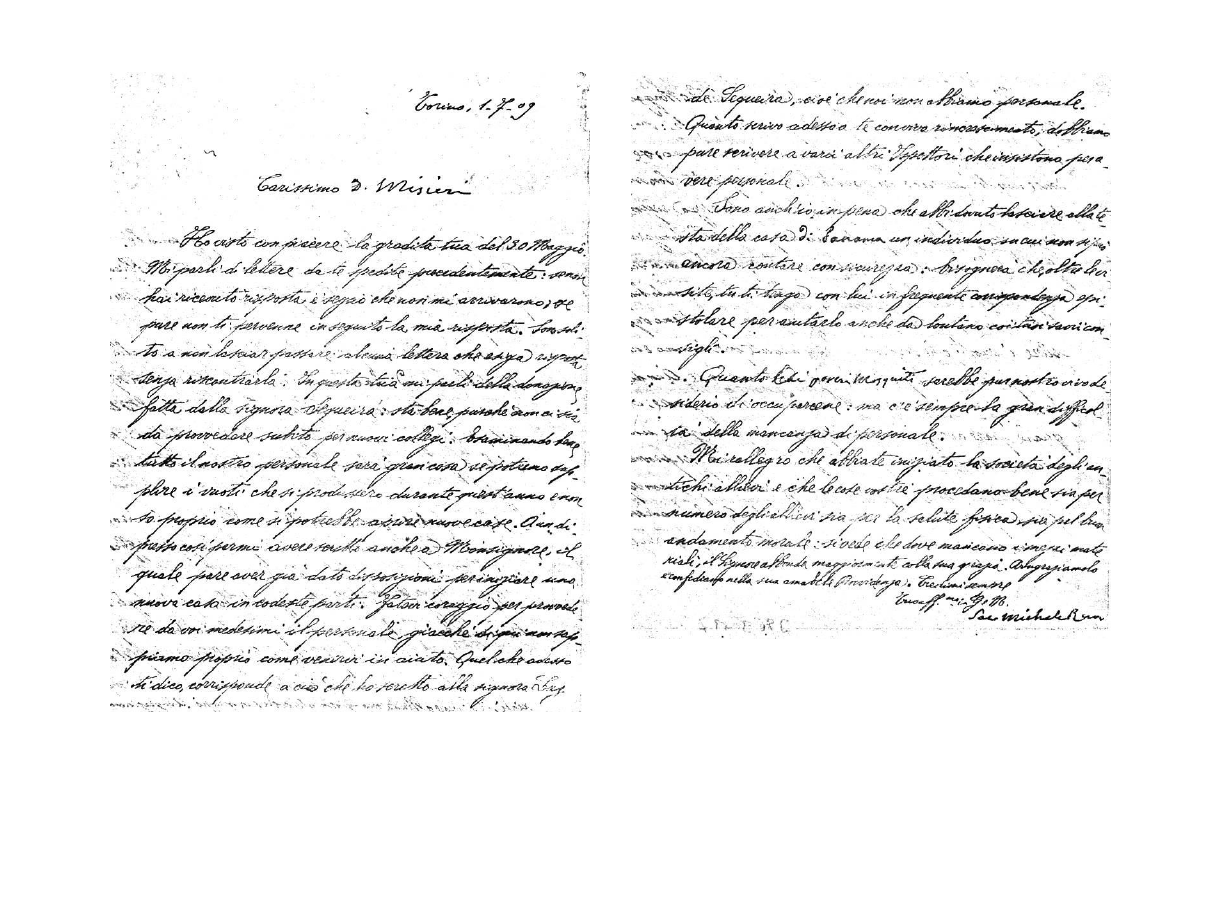 Torino, 1-7-09
Carissimo D. Misieri
Ho visto con piacere la gradita tua del 30 Maggio.
Mi parli di lettere da te spedite precedentemente: se non
hai ricevuto risposta è segno che non mi arrivarono, op
pure non ti pervenne in seguito la mia risposta. Son soli-
to a non lasciar passare alcuna lettera che esiga risposta
senza riscontrarla. In questa tua mi parli della donazione
fatta dalla signora Sequeira: sta bene, purché non ci sia
da provvedere subito per nuovi collegi. Esaminando bene
tutto il nostro personale sarà gran cosa se potremo sup-
plire i vuoti che si produssero durante quest'anno e non
so proprio come si potrebbe aprire nuove case. A un di-
presso così parmi avere scritto anche a Monsignore, il
quale pare aver già dato disposizioni per iniziare una
nuova casa in codeste parti. Fatevi coraggio per provvede
re da voi medesimi il personale giacché di qui non sap-
piamo proprio come venirvi in aiuto. Quel che adesso
ti dico, corrisponde a ciò che ho scritto alla signora
de Sequeira, cioè che noi non abbiamo personale.
Quanto scrivo adesso a te con vivo rincrescimento, dobbiamo
pure scrivere a varii altri Ispettori che insistono per a
vere personale.
Sono anch'io in pena che abbi dovuto lasciare alla te
sta della casa di Panama un individuo, su cui non si può
ancora contare con sicurezza: bisognerà che, oltre le vi
site, tu ti tenga con lui in frequente corrispondenza epi
stolare per aiutarlo anche da lontano coi tuoi savi con
sigli.
Quanto ai poveri Mosquiti sarebbe pur nostro vivo de
siderio di occuparcene: ma c'è sempre la gran difficol
tà della mancanza di personale.
Mi rallegro che abbiate iniziato la società degli an
tichi allievi e che le cose vostre procedano bene sia per
numero degli allievi sia per la salute fisica, sia pel buon
andamento morale: si vede che dove mancono i mezzi mate
riali, il Signore abbonda maggiormente colla sua grazia. Ringraziamolo
e confidiamo nella sua amabile Provvidenza. Credimi sempre
Tuo aff.mo in G. e M.
Sac. Michele Rua